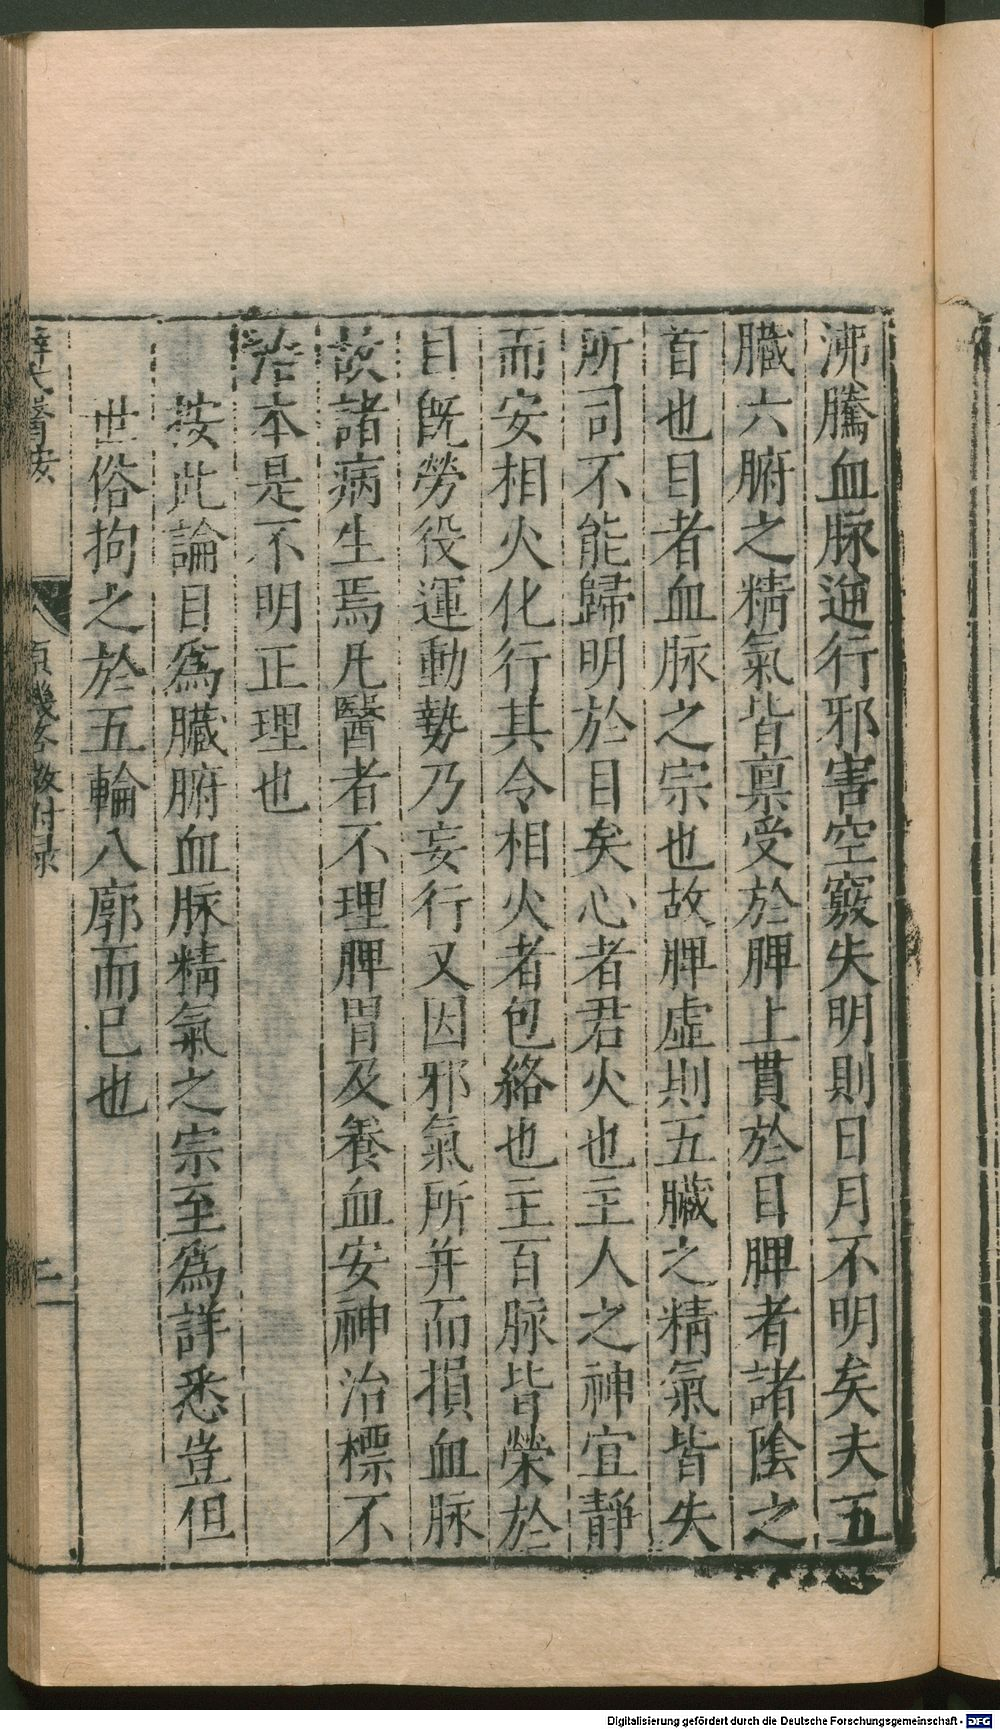 沸騰血脉逆行邪害空竅失明則日月不明矣夫五
臟六腑之精氣皆禀受於脾上貫於目脾者諸陰之
首也目者血脉之宗也故脾虛則五臟之精氣皆失
所司不能歸明於目矣心者君火也主人之神宜靜
而安相火化行其令相火者包絡也主百脉皆榮於
目既勞役運動勢乃妄行又因邪氣所并而損血脉
故諸病生焉凡醫者不理脾胃及養血安神治標不
治本是不明正理也
按此論目爲臟腑血脉精氣之宗至爲詳悉豈但
世俗拘之於五輪八廓而已也
薛氏醫按
原機啓微付录
二
Digitalisierung gefördert durch die Deutsche Forschungsgemeinschaft - DFG